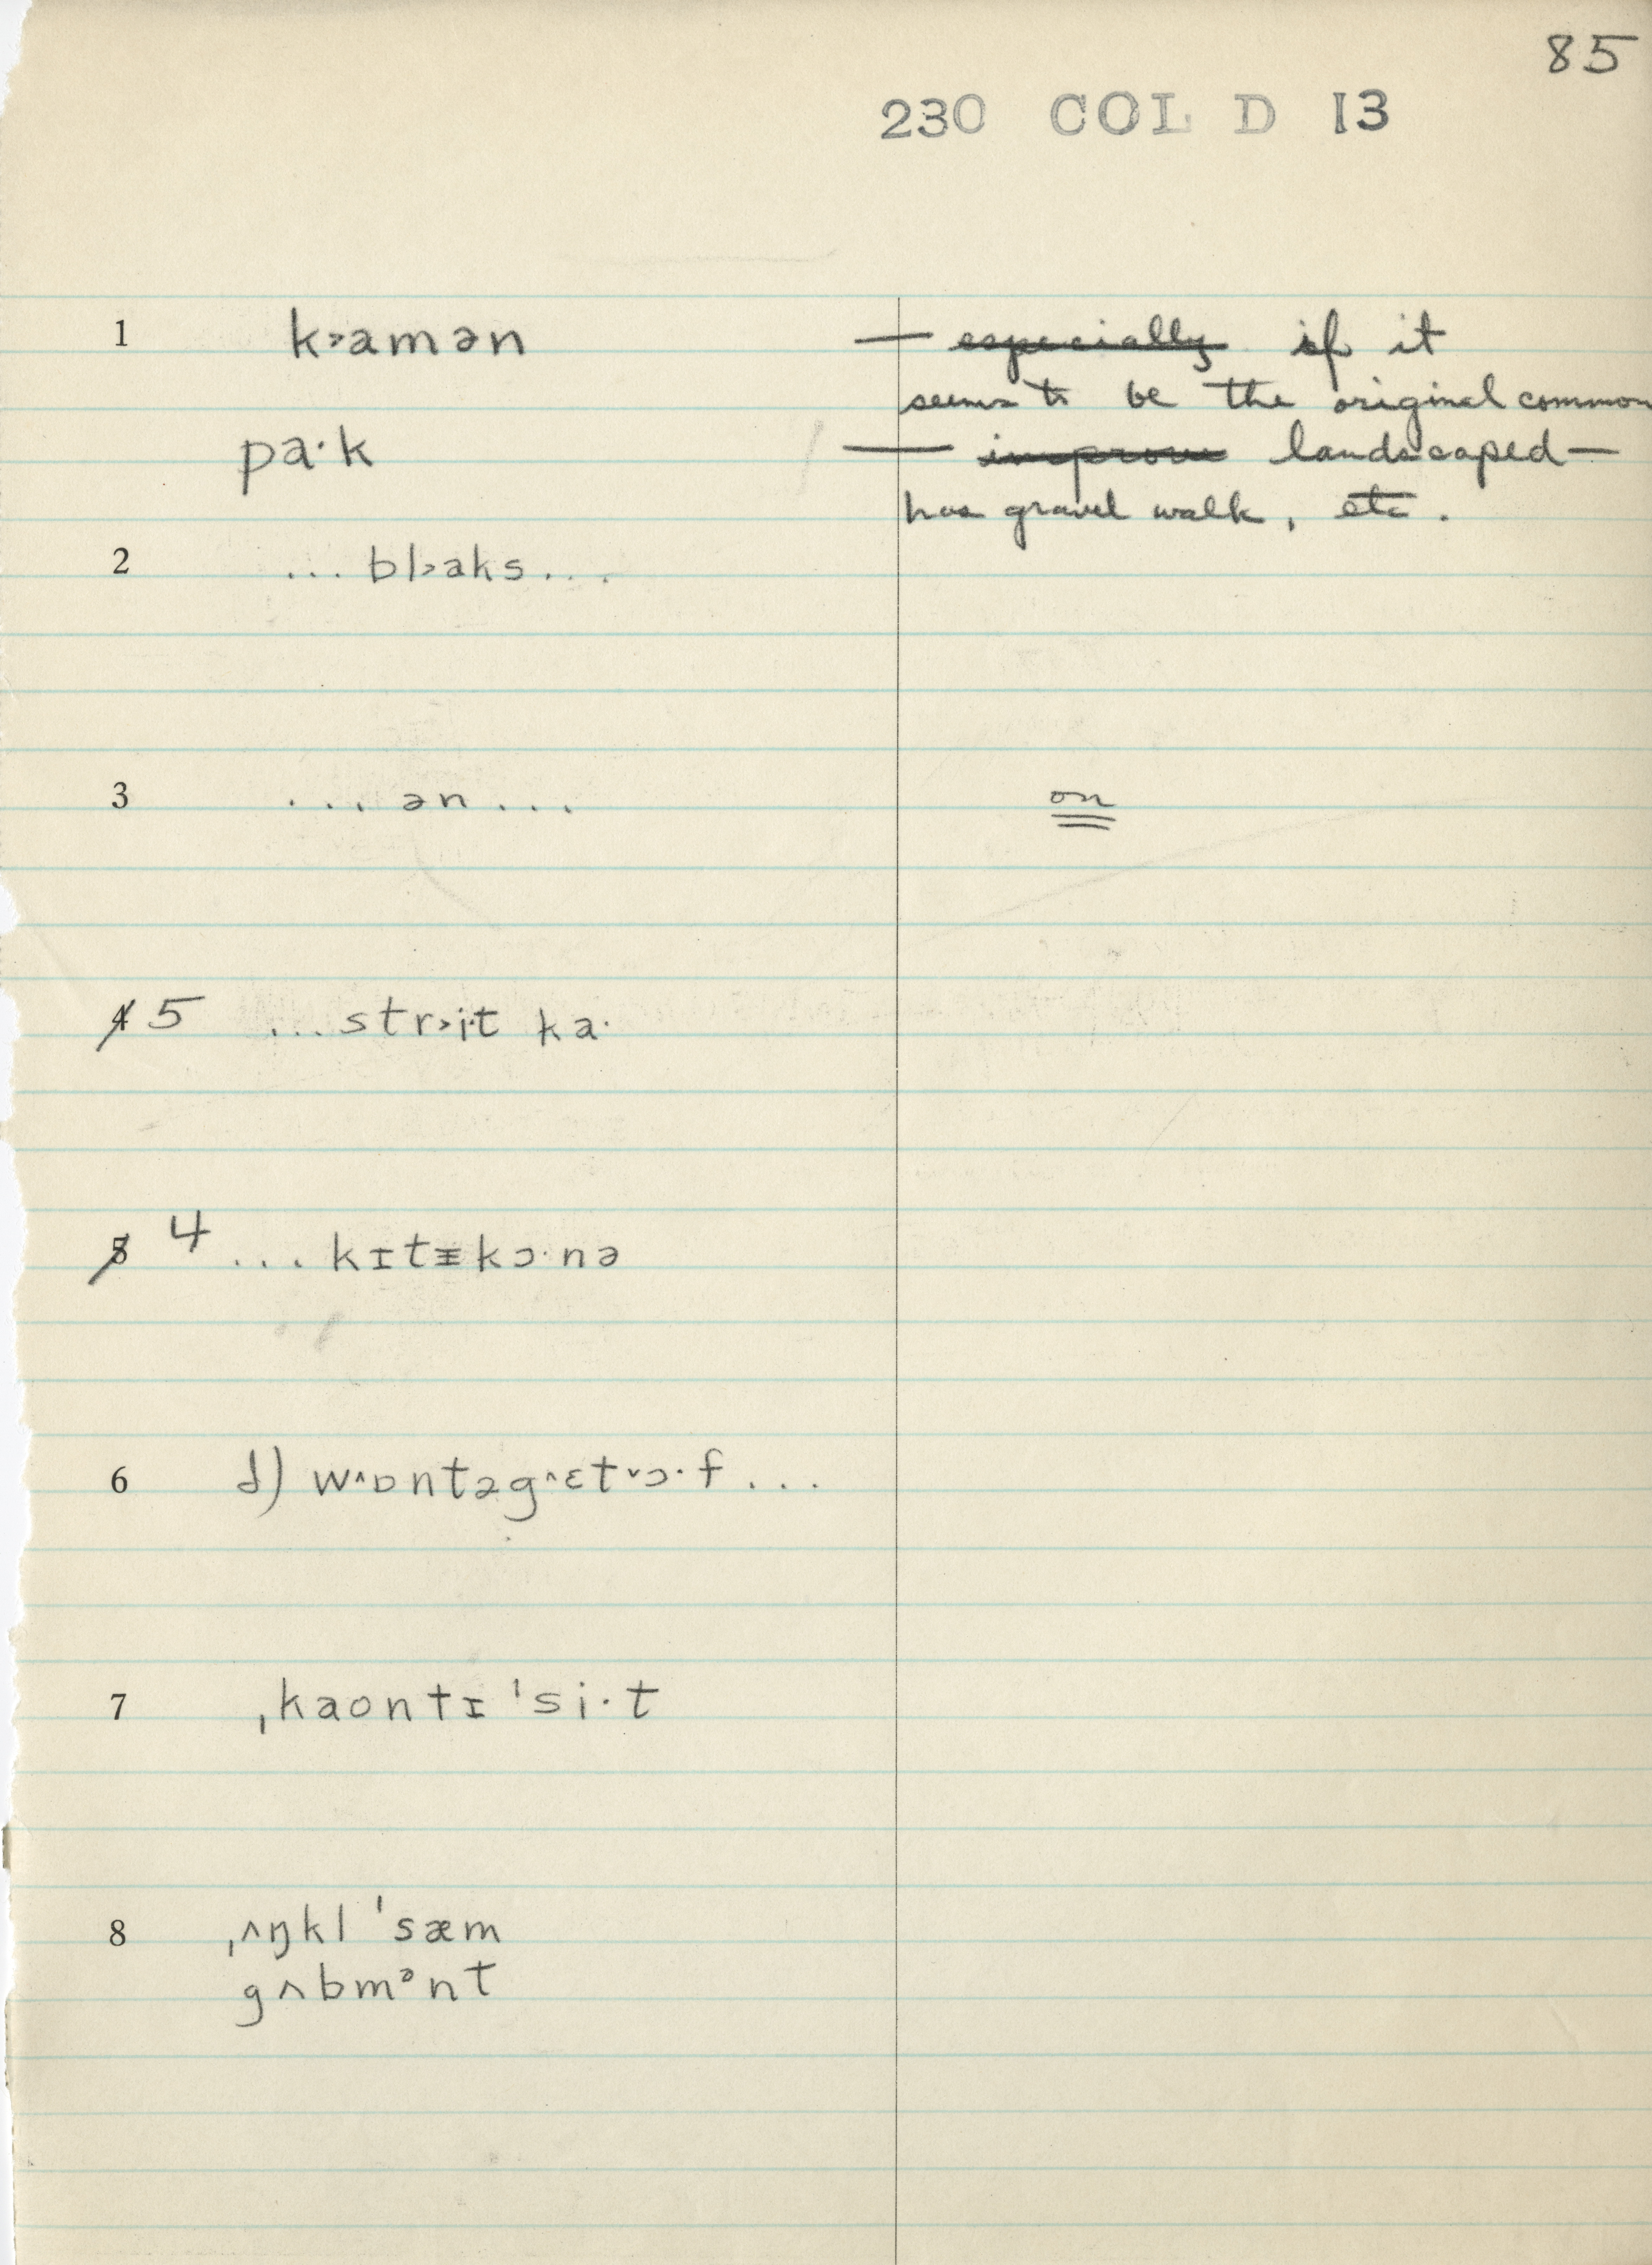 85
230 COL D 13
1 k˃amən — ~~especially~~ if it
seems to be the original common
pa·k — ~~improve~~ landscaped —
has gravel walk, etc.
2 ... bl˃aks ...
3 ... ən ... on
~~4~~ 5 ... str˃i·t ka·
~~5~~ 4 ... kɪtɪ̵kɔ·nə
6 d) w˄ɒntəg˄ɛt˅ɔ·f ...
7 ˌkaontɪ ˈsi·t
8 ˌʌŋkl ˈsæm
gʌbmᵊnt